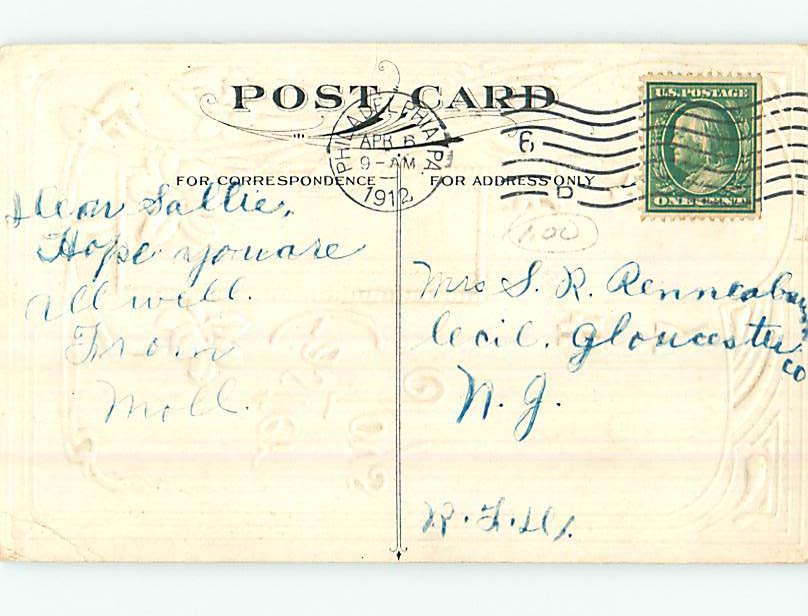 POST CARD
U.S. POSTAGE
ONE CENT
PHILADELPHIA PA.
APR 6
9-AM
1912
6
D
FOR CORRESPONDENCE
FOR ADDRESS ONLY
1.00
Dear Sallie,
Hope you are
all well.
From
Moll.
Mrs S. R.
Cecil. Gloucester
Co
N. J.
R. F. D.